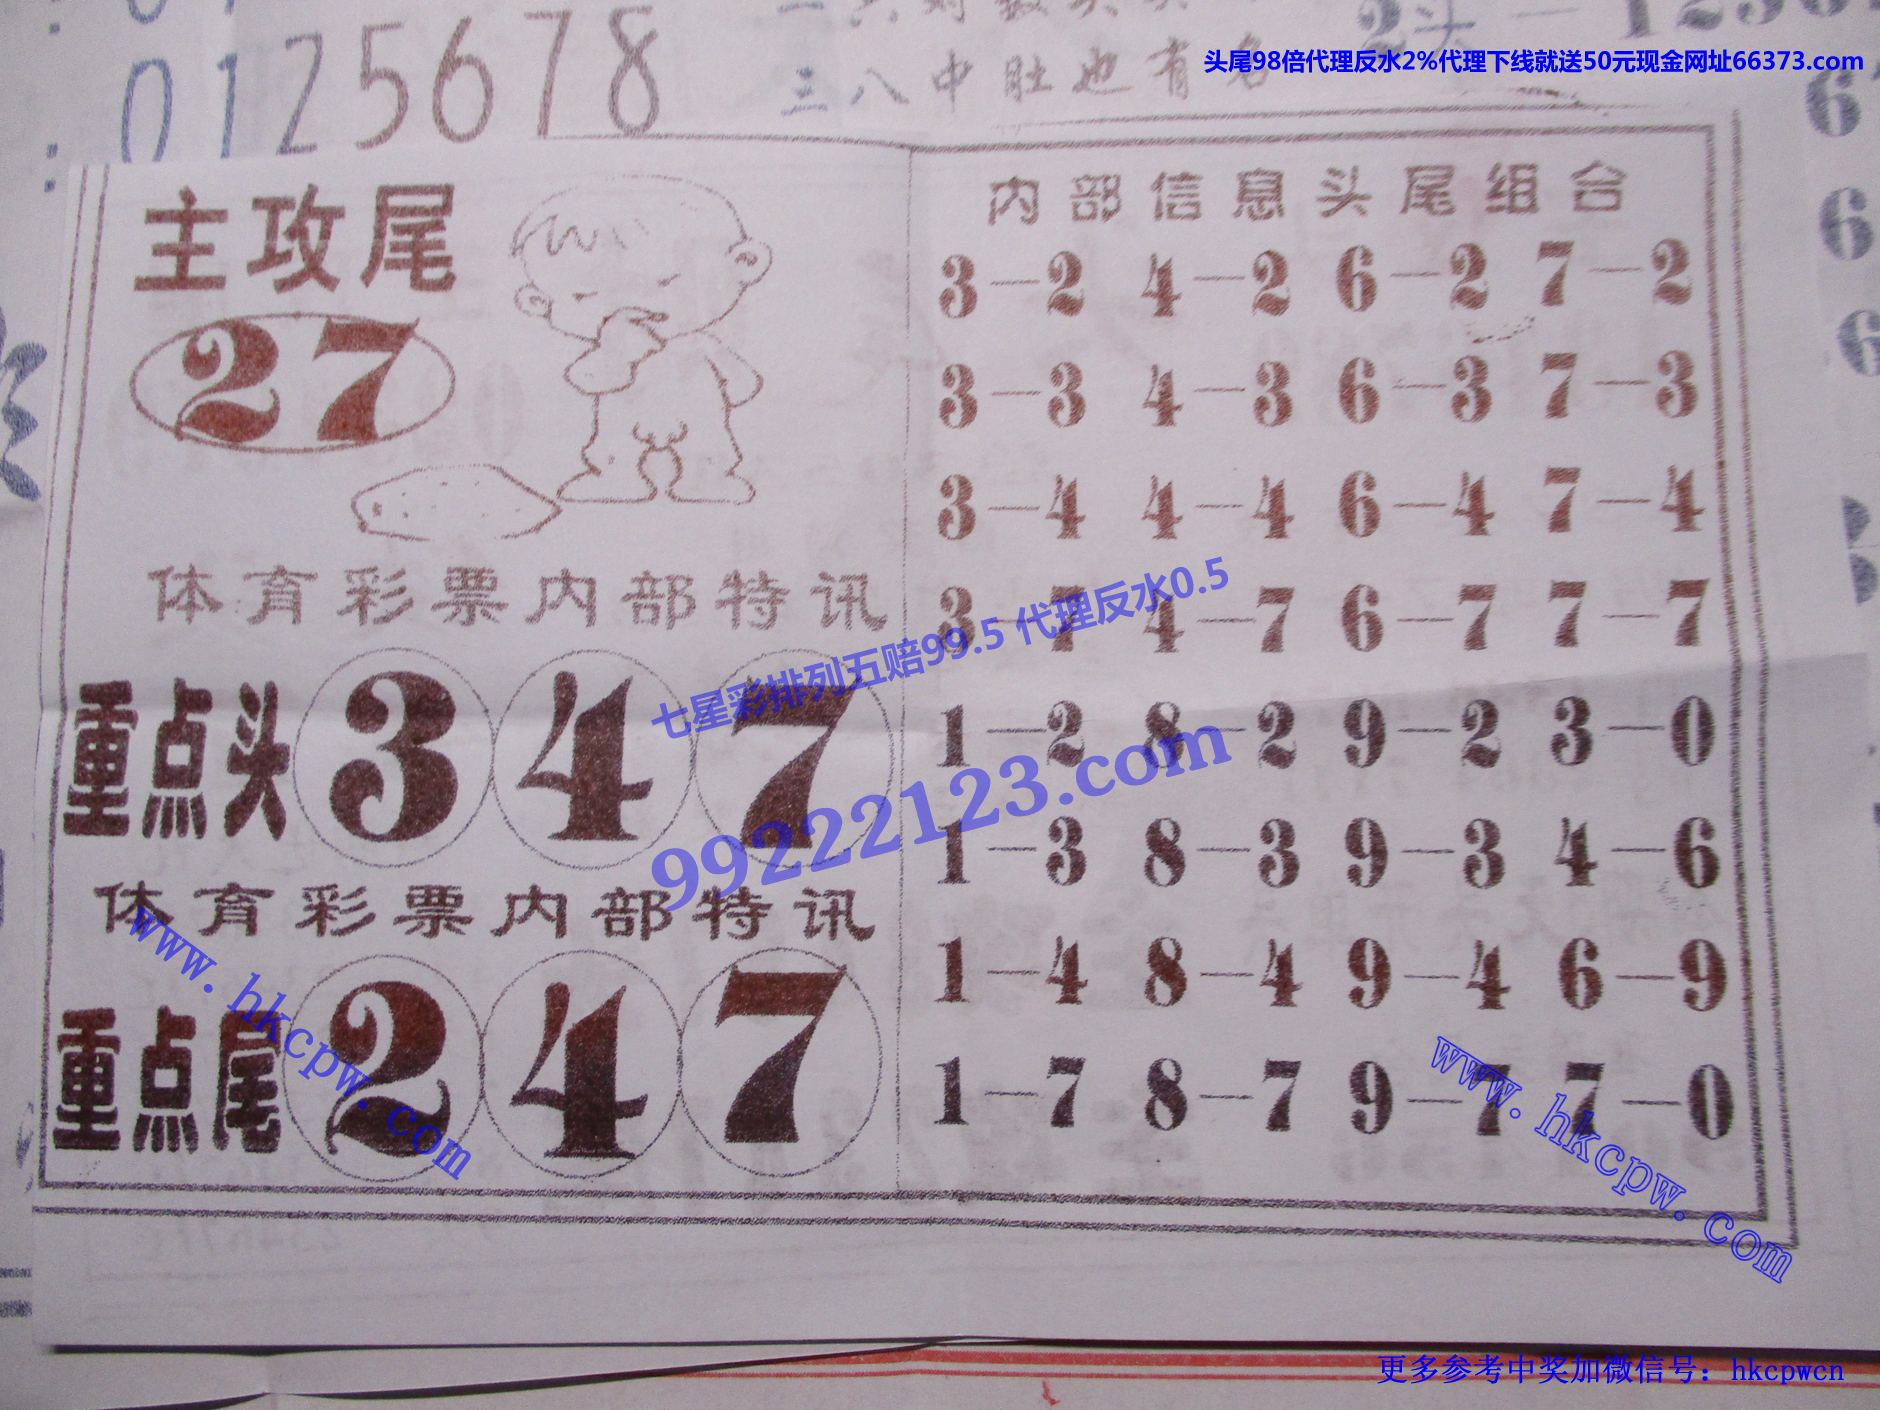 0125678
三八中肚也有名
2头一
头尾98倍代理反水2%代理下线就送50元现金网址66373.com
主攻尾
27
体育彩票内部特讯
重点头 3 4 7
体育彩票内部特讯
重点尾 2 4 7
内部信息头尾组合
3—2 4—2 6—2 7—2
3—3 4—3 6—3 7—3
3—4 4—4 6—4 7—4
3—7 4—7 6—7 7—7
1—2 8—2 9—2 3—0
1—3 8—3 9—3 4—6
1—4 8—4 9—4 6—9
1—7 8—7 9—7 7—0
七星彩排列五赔99.5 代理反水0.5
99222123.com
www.hkcpw.com
www.hkcpw.com
更多参考中奖加微信号：hkcpwcn